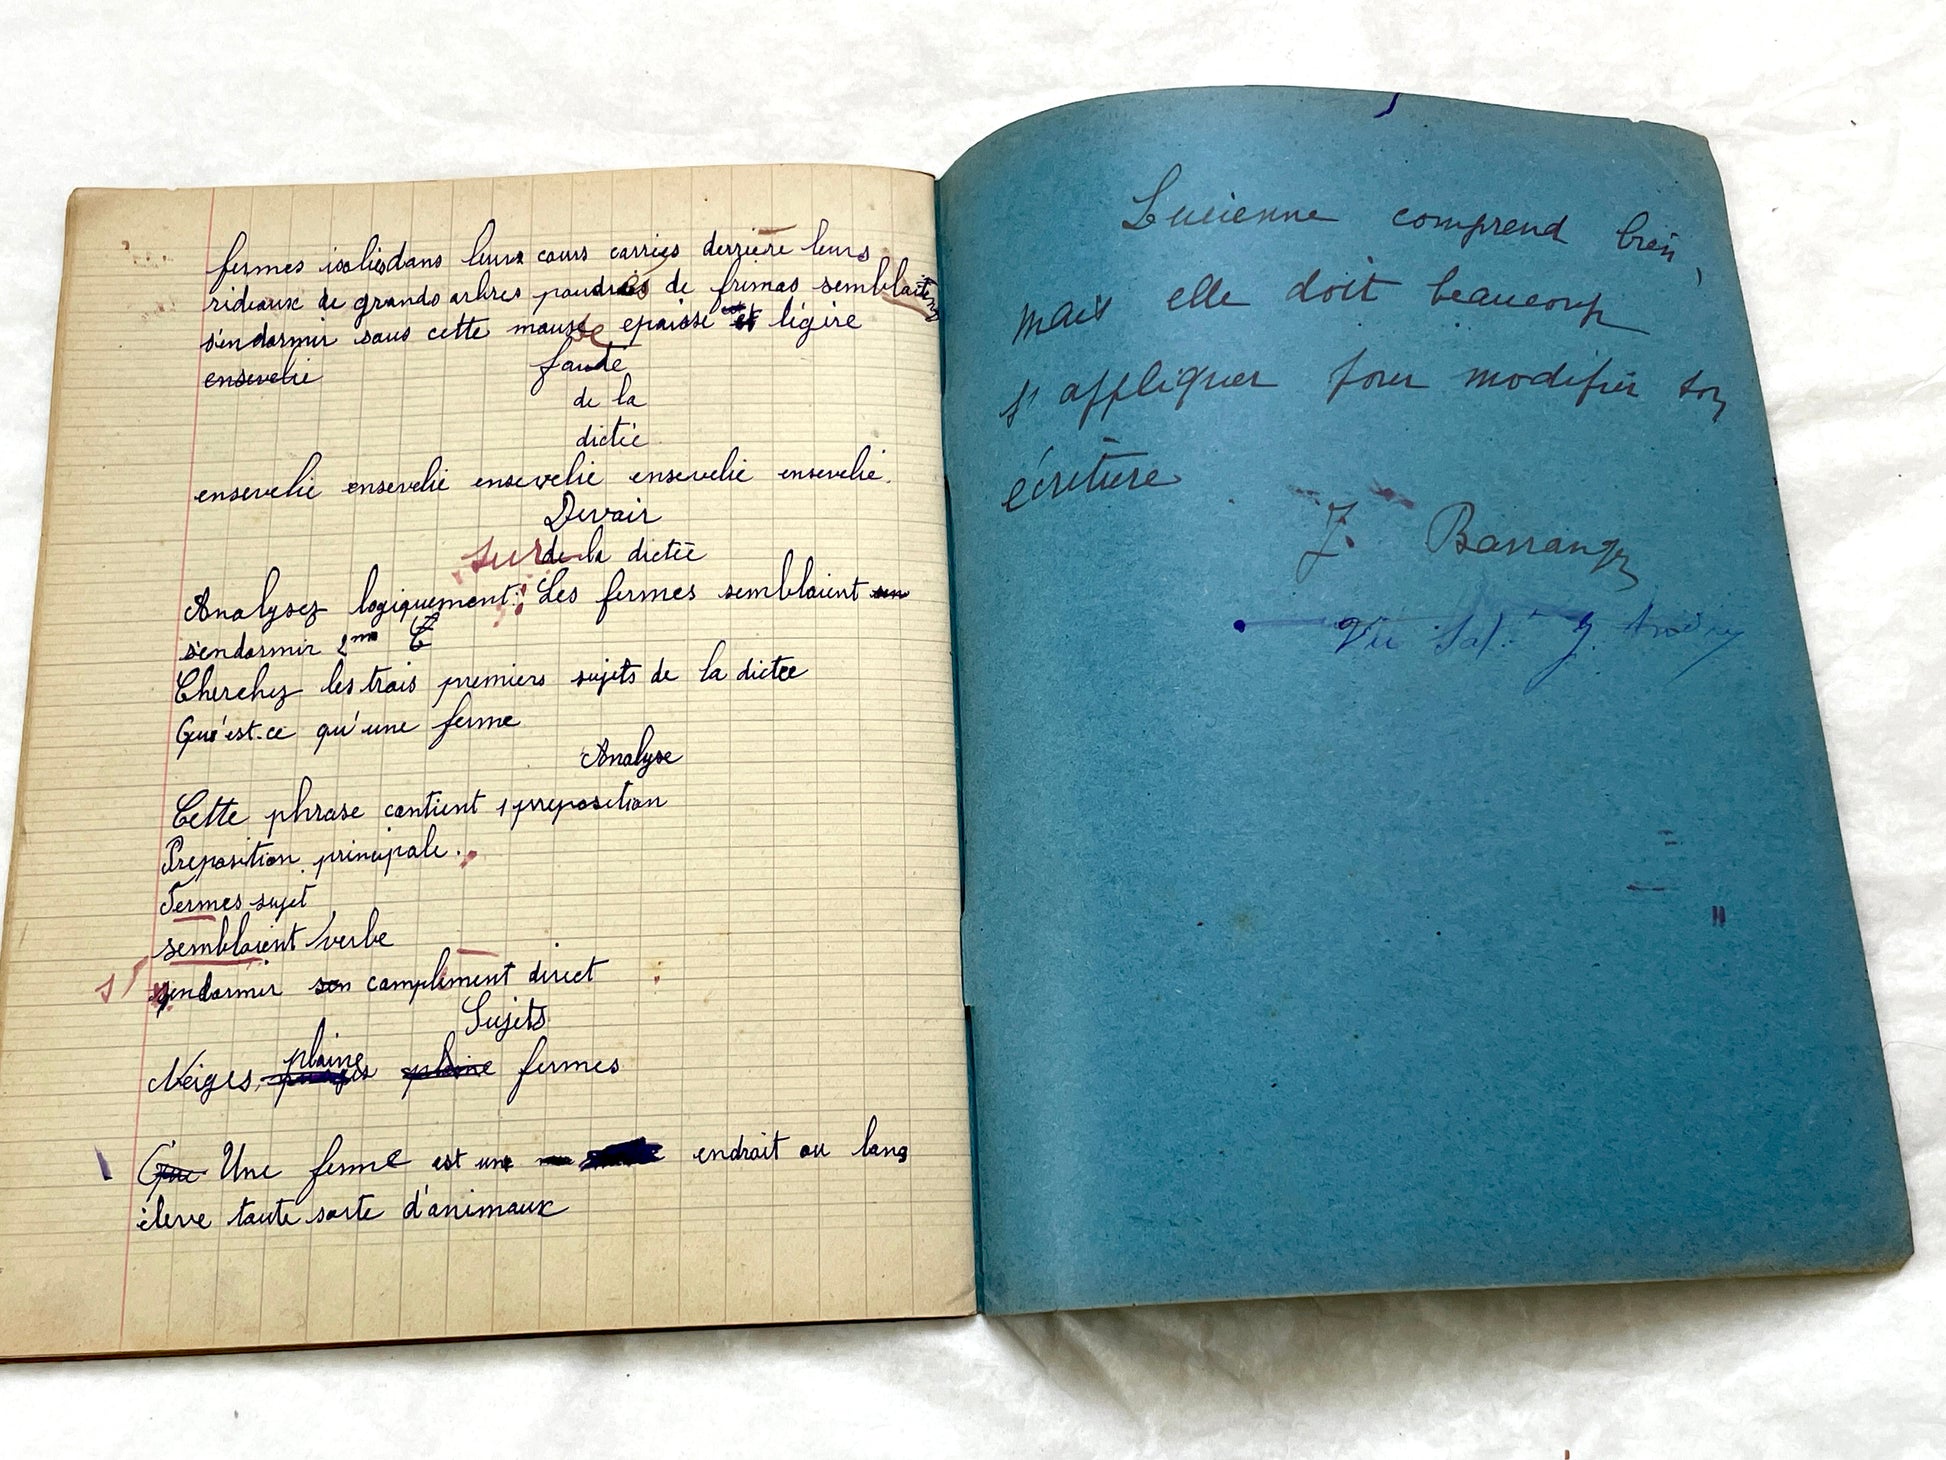 fermes isolies dans leurs cours carries derriere leurs
rideaux de grands arbres poudrés de frimas semblaient
s'endormir sous cette mousse epaisse et ligère
ensevelie
faute
de la
dictée
ensevelie ensevelie ensevelie ensevelie ensevelie.
Devoir
sur de la dictée
Analysez logiquement: Les fermes semblaient en
s'endormir 2me
Cherchez les trois premiers sujets de la dictee
Qu'est-ce qu'une ferme
Analyse
Cette phrase contient 1 preposition
Preposition principale.
Fermes sujet
semblaient verbe
s' endormir son complement direct
Sujets
plaine
Neiges, plaine fermes
Que Une ferme est une endroit ou long
élève toute sorte d'animaux
Lucienne comprend bien,
mais elle doit beaucoup
s'appliquer pour modifier son
écriture
J. Barranger
Vu